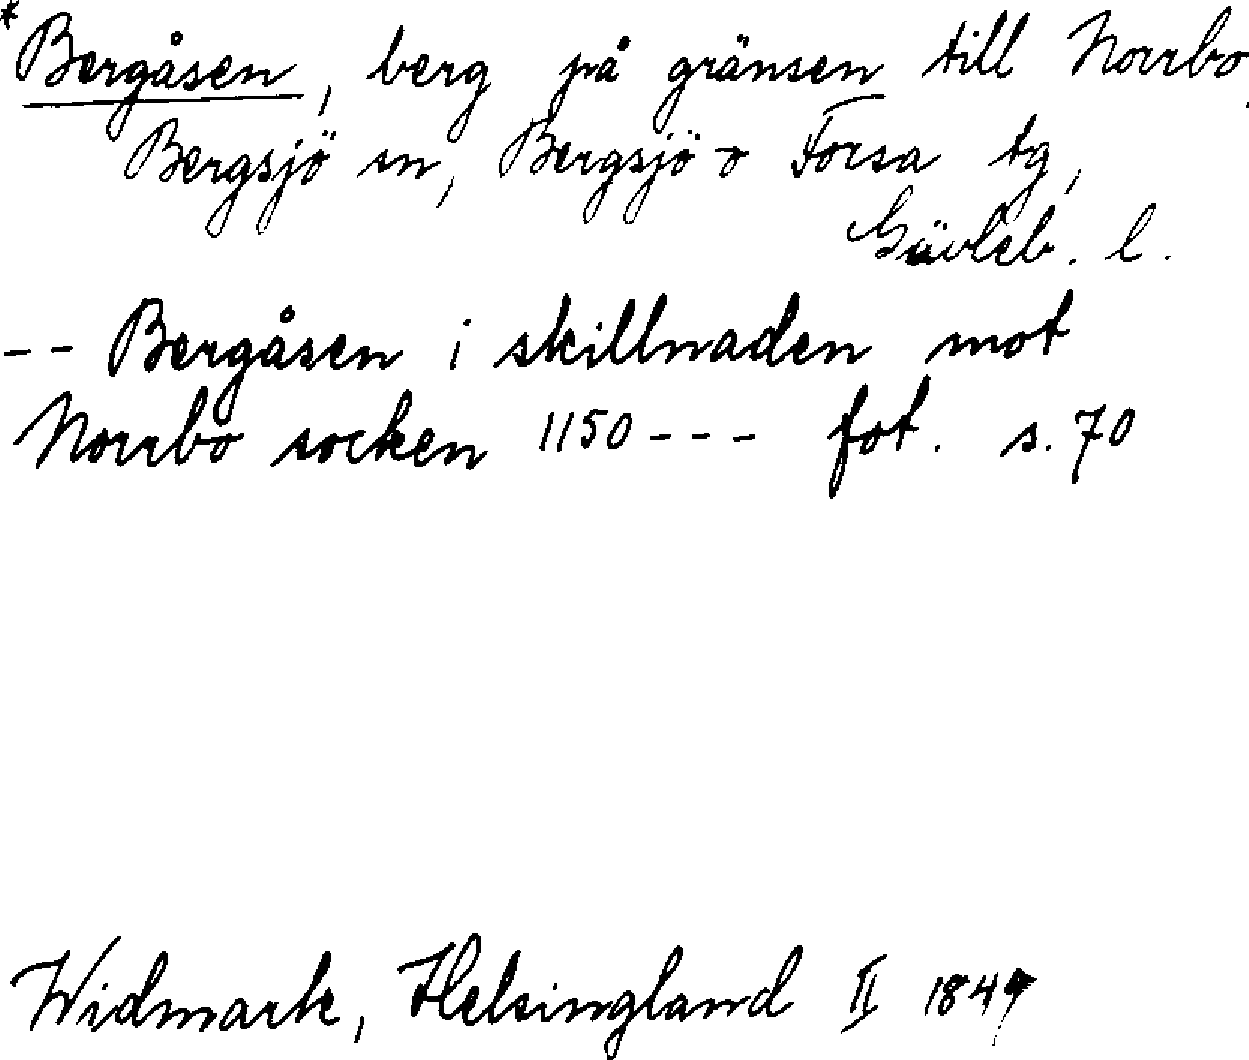 *Bergåsen, berg på gränsen till Norrbo,
Bergsjö sn, Bergsjö o Forsa tg,
Gävleb. l.
-- Bergåsen i skillnaden mot
Norrbo socken 1150 --- fot. s. 70
Widmark, Helsingland II 1849